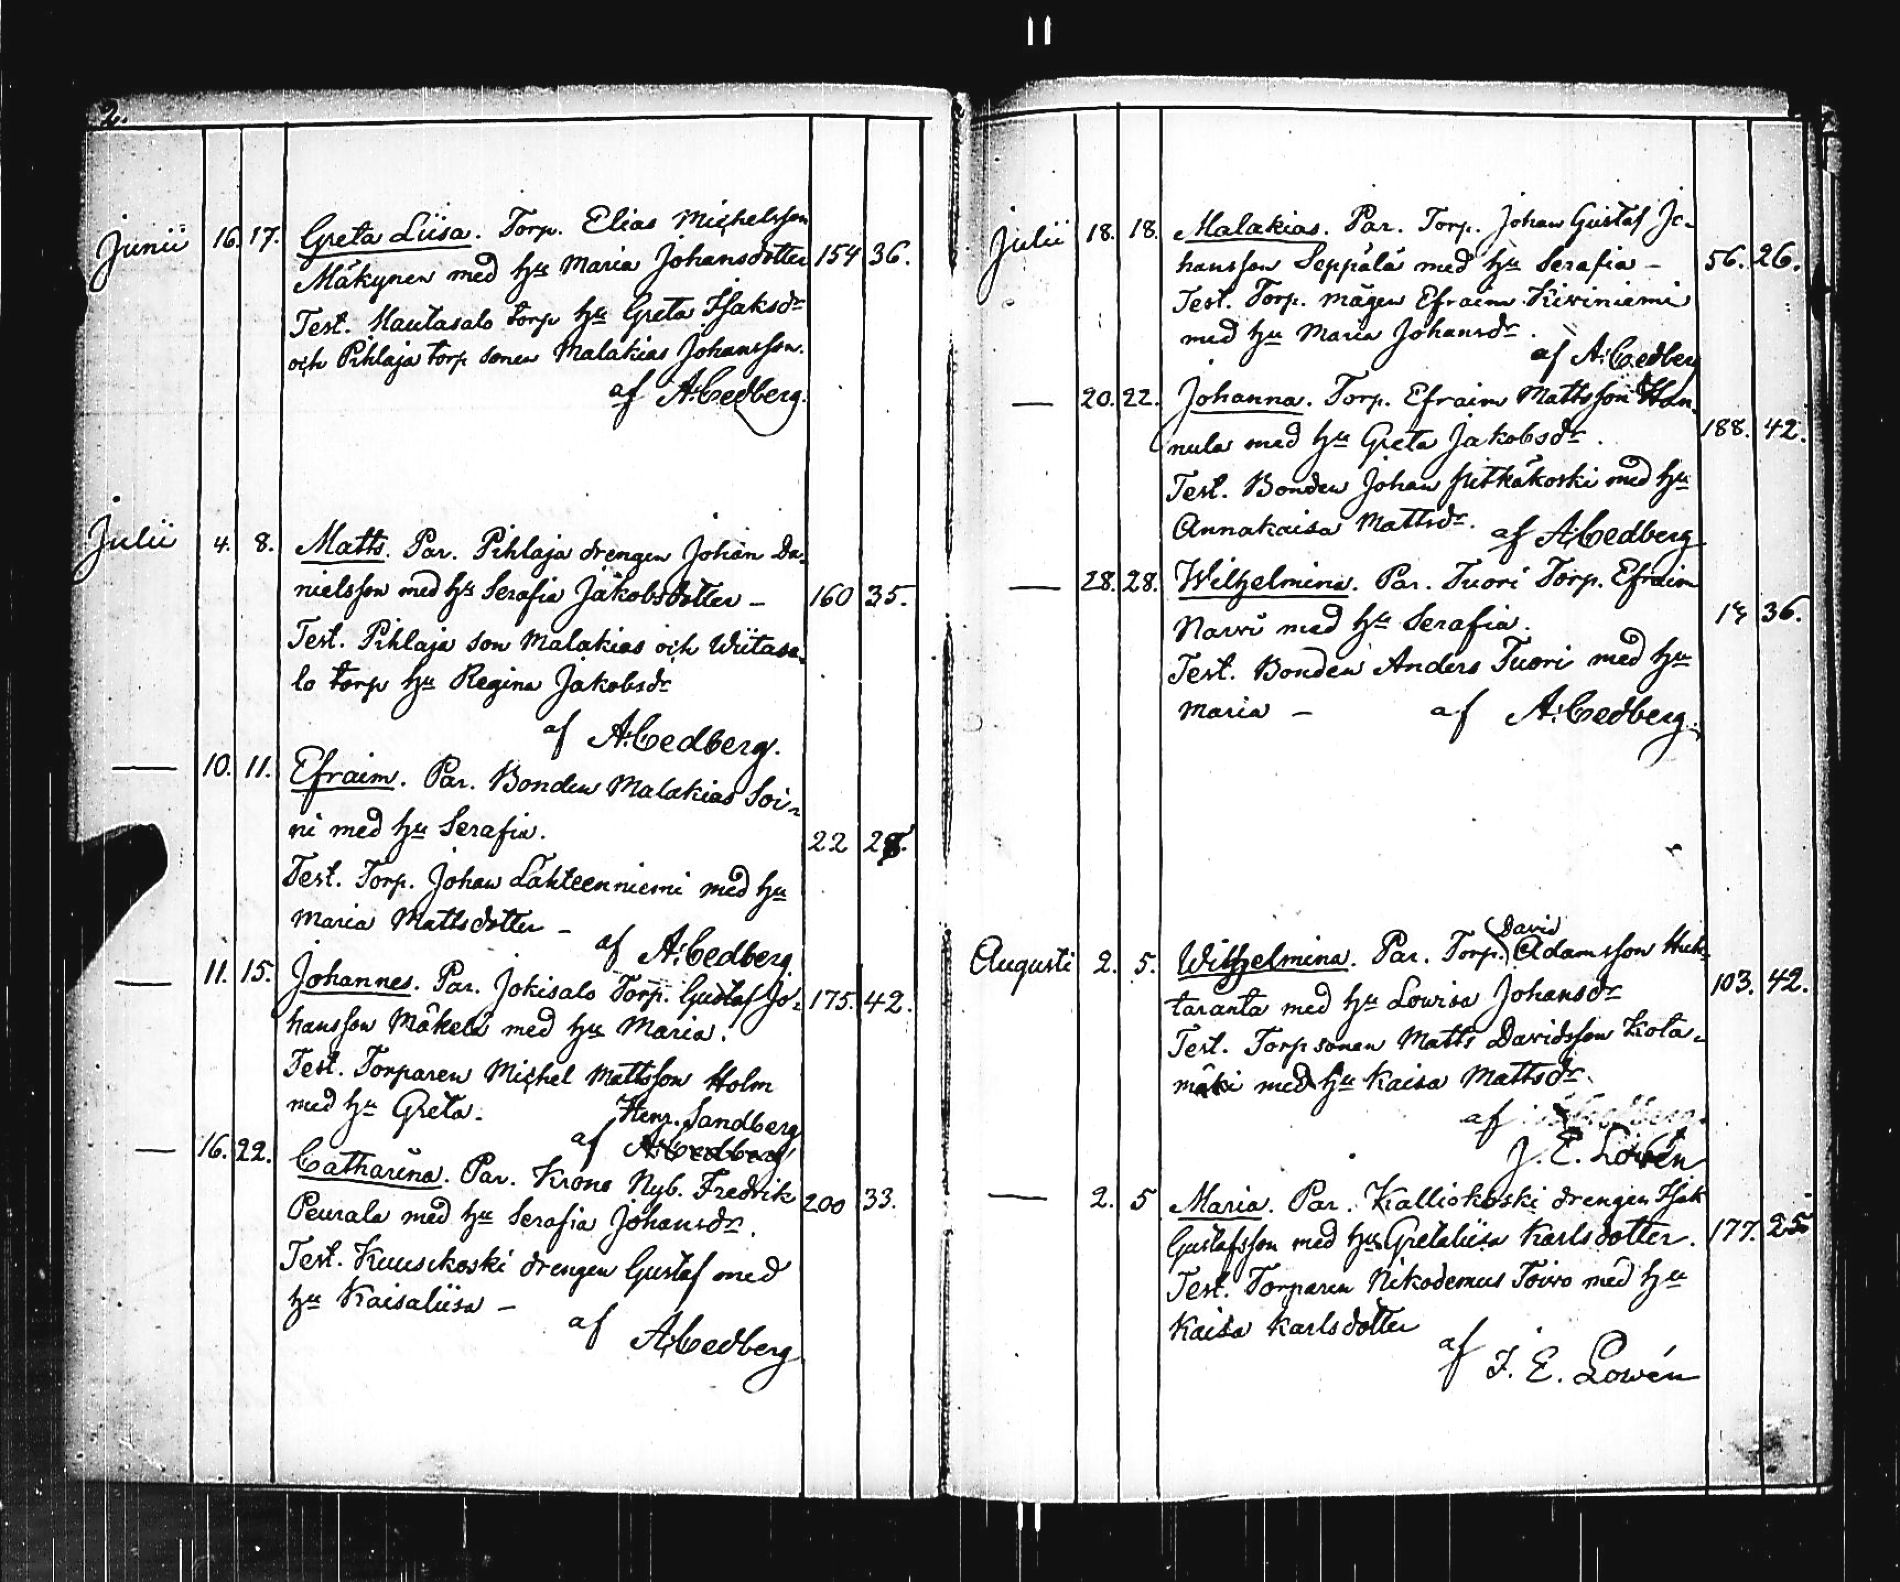 2.
Junii 16. 17. Greta Liisa. Torp. Elias Michelsson
Mäkynen med hu Maria Johansdotter 154 36.
Test. Hautasalo torp hu Greta Isaksdr
och Pihlaja torp sonen Malakias Johansson.
af A. Cedberg.
Julii 4. 8. Matts. Par. Pihlaja drengen Johan Da-
nielsson med hu Serafia Jakobsdotter – 160 35.
Test. Pihlaja son Malakias och Wiitasa-
lo torp hu Regina Jakobsdr
af A. Cedberg.
— 10. 11. Efraim. Par. Bonden Malakias Soi-
ni med hu Serafia. 22 28.
Test. Torp. Johan Lahteenniemi med hu
Maria Mattsdotter –
af A. Cedberg.
— 11. 15. Johannes. Par. Jokisalo Torp. Gustaf Jo- 175. 42.
hansson Mäkelä med hu Maria.
Test. Torparen Michel Mattsson Holm
med hu Greta. Henr. Sandberg
af A. Cedberg
— 16. 22. Catharina. Par. Krono Nyb. Fredrik 200 33.
Peurala med hu Serafia Johansdr.
Test. Kuusikoski drengen Gustaf med
hu Kaisaliisa –
af A. Cedberg
Julii 18. 18. Malakias. Par. Torp. Johan Gustaf Jo-
hansson Seppälä med hu Serafia – 56. 26.
Test. Torp. mågen Efraim Kiviniemi
med hu Maria Johansdr.
af A. Cedberg
— 20. 22. Johanna. Torp. Efraim Mattsson Han-
nula med hu Greta Jakobsdr. 188. 42.
Test. Bonden Johan Pitkäkoski med hu
Annakaisa Mattsdr. af A. Cedberg
— 28. 28. Wilhelmina. Par. Tuori Torp. Efraim
Narvi med hu Serafia. 36.
Test. Bonden Anders Tuori med hu
Maria – af A. Cedberg.
David
Augusti 2. 5. Wilhelmina. Par. Torp. Adamsson Huh-
taranta med hu Lowisa Johansdr 103. 42.
Test. Torpsonen Matts Davidsson Kota-
mäki med hu Kaisa Mattsdr.
af
J. E. Lowén
— 2. 5 Maria. Par. Kalliokoski drengen Isak
Gustafsson med hu Gretaliisa Karlsdotter. 177. 25
Test. Torparen Nikodemus Toivo med hu
Kaisa Karlsdotter
af J. E. Lowén